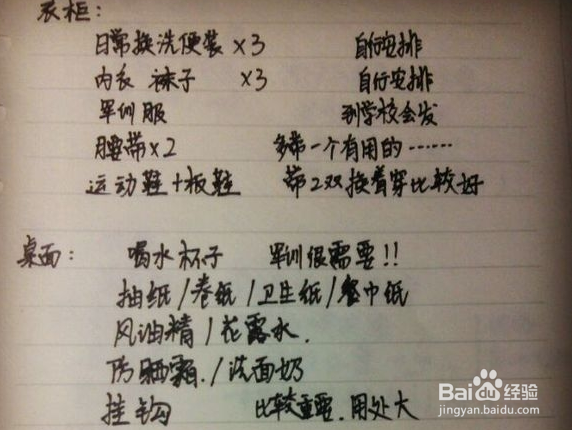 衣柜:
日常换洗便装 ×3 自行安排
内衣 袜子 ×3 自行安排
军训服 到学校会发
腰带×2 多带一个有用的……
运动鞋+板鞋 带2双换着穿比较好
桌面: 喝水杯子 军训很需要!!
抽纸/卷纸/卫生纸/餐巾纸
风油精/花露水.
防晒霜./洗面奶
挂钩 比较重要.用处大
Baidu经验
jingyan.baidu.com